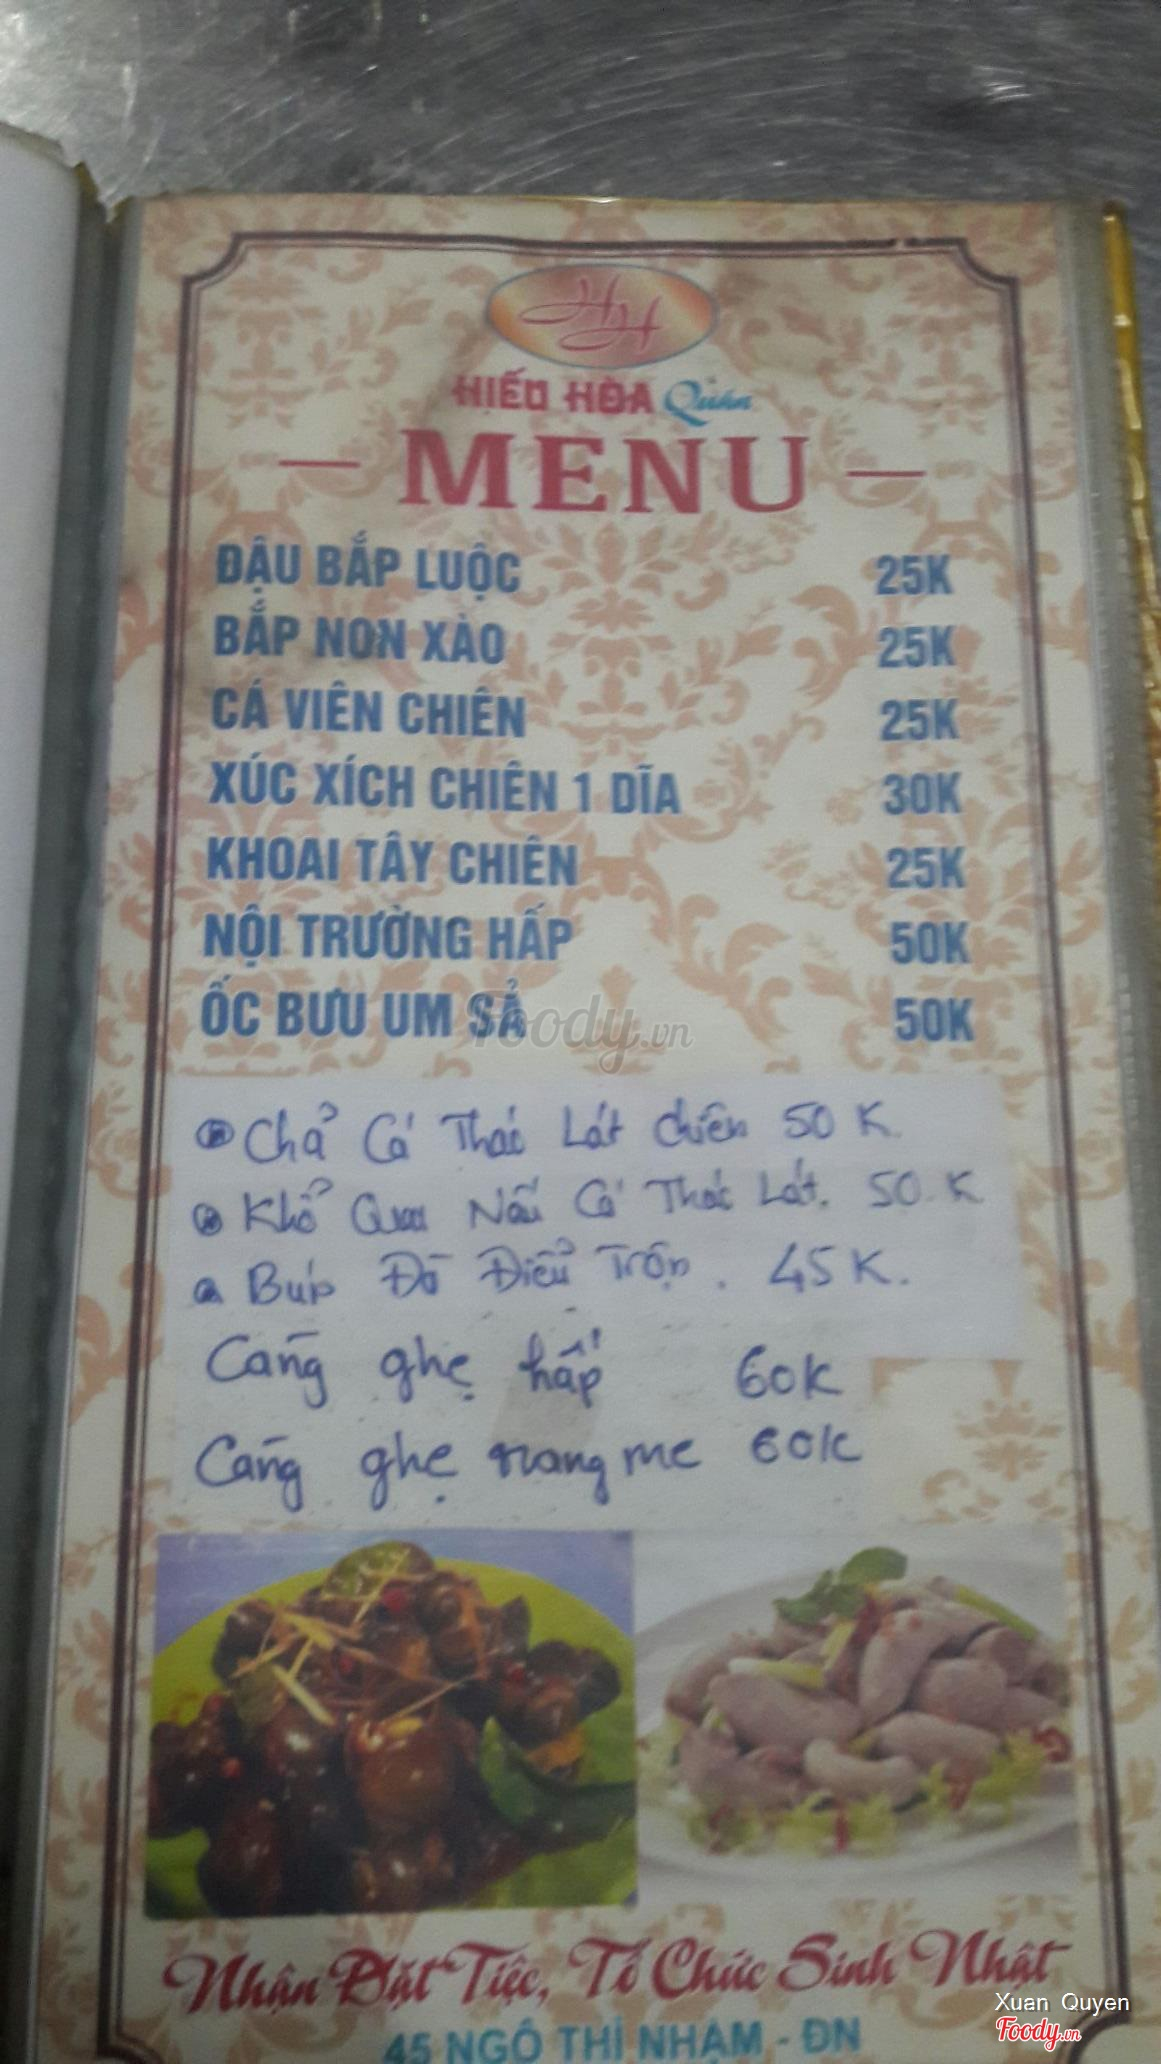 HH
HIẾU HÒA Quán
— MENU —
ĐẬU BẮP LUỘC 25K
BẮP NON XÀO 25K
CÁ VIÊN CHIÊN 25K
XÚC XÍCH CHIÊN 1 DĨA 30K
KHOAI TÂY CHIÊN 25K
NỘI TRƯỜNG HẤP 50K
ỐC BƯU UM SẢ 50K
Foody.vn
Chả Cá Thác Lát chiên 50K.
Khổ Qua Nấu Cá Thác Lát. 50.K
Búp Đà Điểu Trộn. 45K.
Càng ghẹ hấp 60K
Càng ghẹ rang me 60K
Nhận Đặt Tiệc, Tổ Chức Sinh Nhật
45 NGÔ THÌ NHẬM - ĐN
Xuan Quyen
Foody.vn